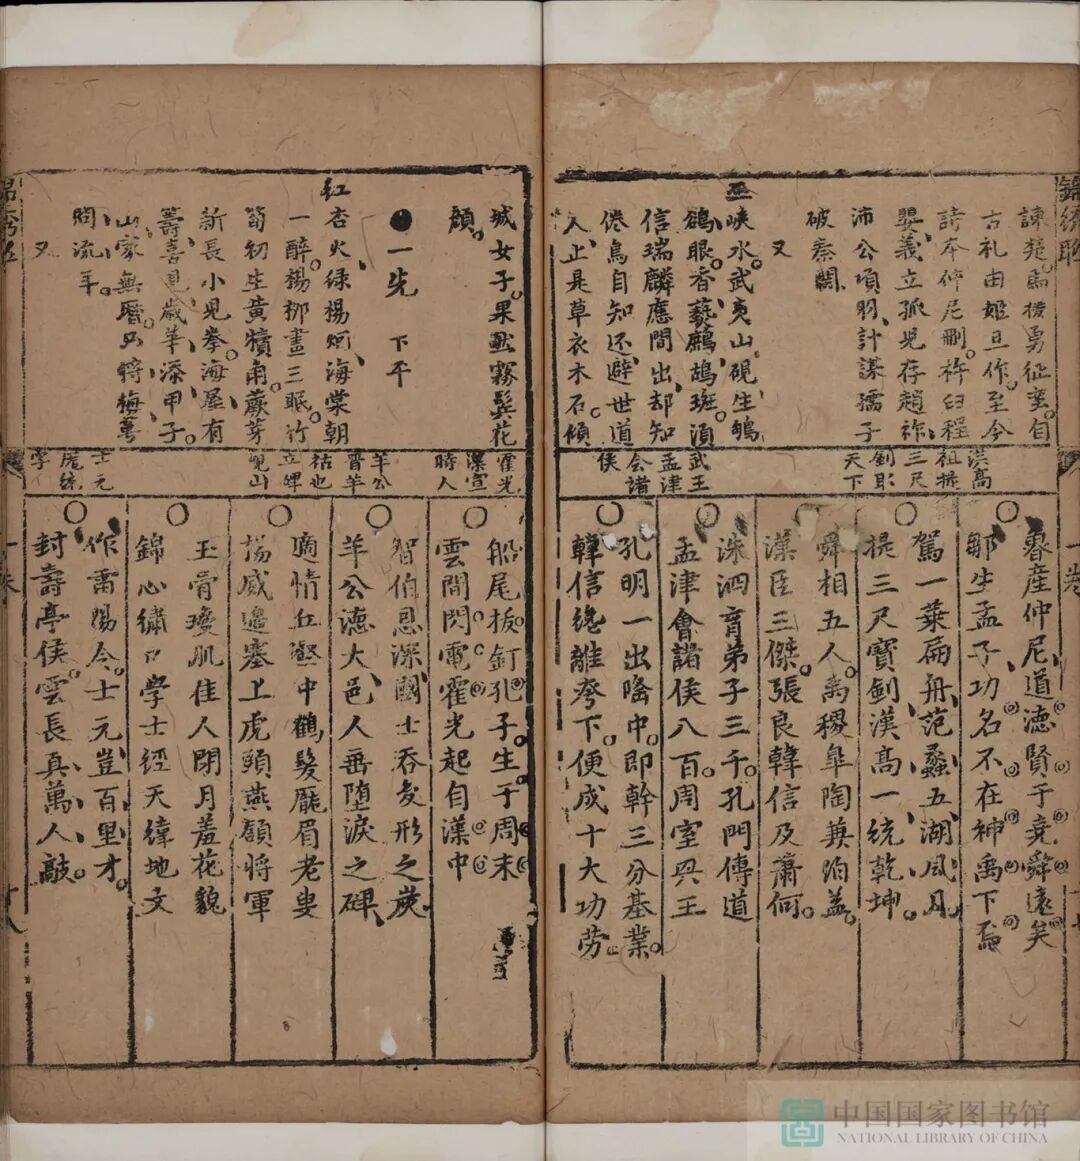 諫楚馬援勇征蠻自
古礼由姬旦作至今
詩本仲尼刪杵臼程
嬰義立孤児存趙祚
沛公項羽計謀孺子
破秦關
又
巫峽水武夷山硯生鴝
鵒眼香藝鷓鴣斑須
信瑞麟應間出却知
倦鳥自知还避世道
人止是草衣木石傾
漢高
祖提
三尺
劍取
天下
武王
孟津
会諸
侯
魯産仲尼道德賢于堯舜遠矣
鄒生孟子功名不在神禹下焉
駕一葉扁舟范蠡五湖風月
提三尺寶劍漢高一統乾坤
舜相五人禹稷臯陶兼伯益
漢臣三傑張良韓信及蕭何
洙泗育弟子三千孔門傳道
孟津會諸侯八百周室興王
孔明一出隆中即幹三分基業
韓信纔離胯下便成十大功劳
城女子果然霧鬂花
顏
一先 下平
紅杏火緑楊烟海棠朝
一醉楊柳晝三眠竹
筍初生黃犢甬蕨芽
新長小児拳海屋有
籌喜見歲華添甲子
山家無曆只將梅萼
問流年
又
霍光
漢宣
時人
羊公
晋羊
祜也
立碑
峴山
士元
龐統
字
船尾板釘孔子生于周末
雲間閃電霍光起自漢中
智伯恩深國士吞炭形之羙
羊公德大邑人垂堕淚之碑
適情丘壑中鶴髮龎眉老叟
揚威邊塞上虎頭燕頷將軍
玉骨瓊肌佳人閉月羞花貌
錦心繡口學士經天緯地文
作耒陽令士元豈百里才
封壽亭侯雲長真萬人敵
一卷
十八
中国国家图书馆
NATIONAL LIBRARY OF CHINA